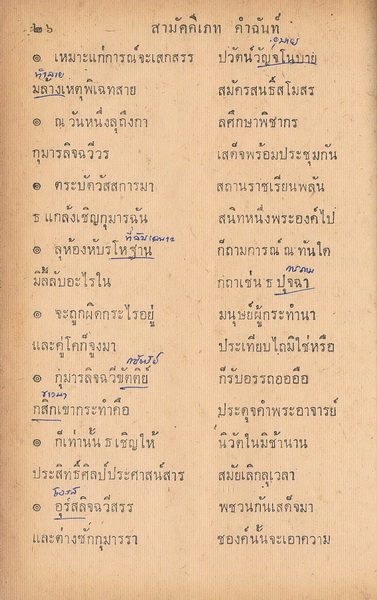 ๒๖ สามัคคีเภท คำฉันท์
อุบาย
๏ เหมาะแก่การณ์จะเสกสรร ปวัตน์วัญจโนบาย
ทำลาย
มล้างเหตุพิเฉทสาย สมัครสนธิ์สโมสร
๏ ณวันหนึ่งลุถึงกา ลศึกษาพิชากร
กุมารลิจฉวีวร เสด็จพร้อมประชุมกัน
๏ ตระบัดวัสสการมา สถานราชเรียนพลัน
ธ แกล้งเชิญกุมารฉัน สนิทหนึ่งพระองค์ไป
ที่ลับเฉพาะ
๏ ลุห้องหับรโหฐาน ก็ถามการณ์ ณ ทันใด
คำถาม
มิลี้ลับอะไรใน กถาเช่น ธ ปุจฉา
๏ จะถูกผิดกระไรอยู่ มนุษย์ผู้กระทำนา
และคู่โคก็จูงมา ประเทียบไถมิใช่หรือ
กษัตริย์
๏ กุมารลิจฉวีขัตติย์ ก็รับอรรถอออือ
ชาวนา
กสิกเขากระทำคือ ประดุจคำพระอาจารย์
๏ ก็เท่านั้น ธ เชิญให้ นิวัตในมิช้านาน
ประสิทธิ์ศิลป์ประศาสน์สาร สมัยเลิกลุเวลา
โอรส
๏ อุรสลิจฉวีสรร พชวนกันเสด็จมา
และต่างซักกุมารรา ชองค์นั้นจะเอาความ